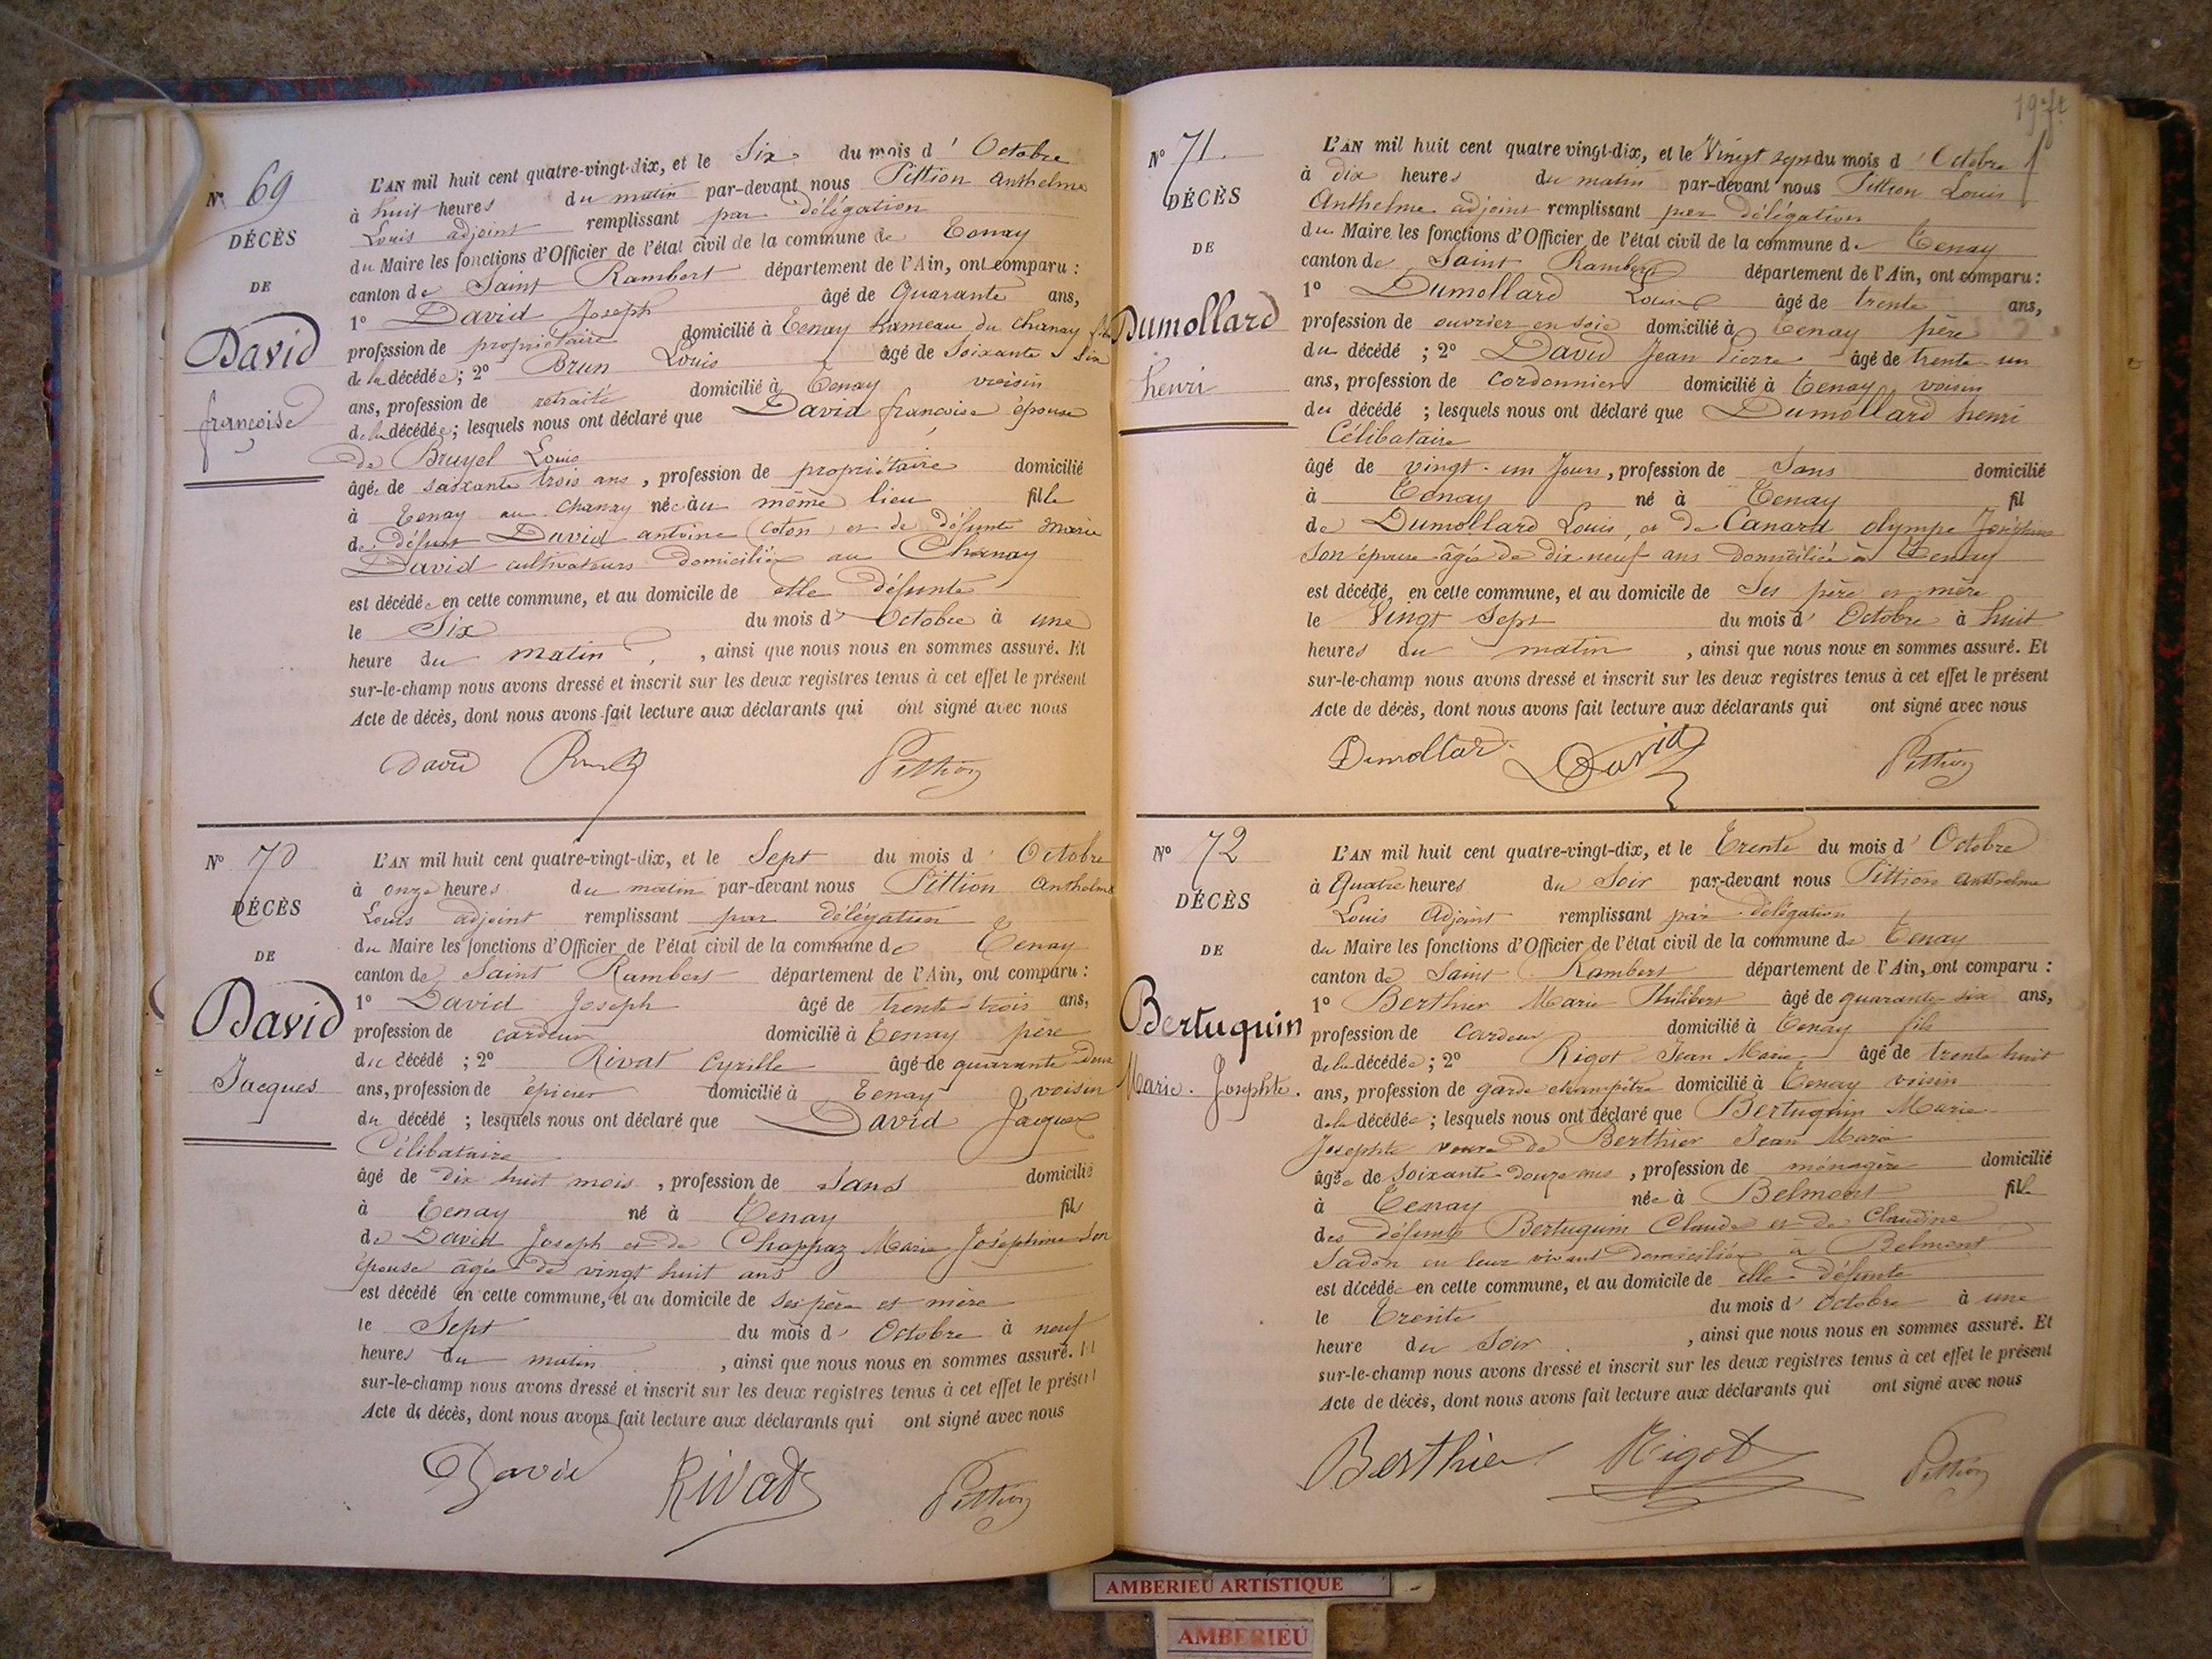 N° 69
DÉCÈS
DE
David
françoise
L'AN mil huit cent quatre-vingt-dix, et le Six du mois d' Octobre
à huit heures du matin par-devant nous Pittion Anthelme
Louis adjoint remplissant par délégation
du Maire les fonctions d'Officier de l'état civil de la commune de Tenay
canton de Saint Rambert département de l'Ain, ont comparu :
1° David Joseph âgé de Quarante ans,
profession de propriétaire domicilié à Tenay hameau du Chanay
de la décédée ; 2° Brun Louis âgé de Soixante Six
ans, profession de retraité domicilié à Tenay voisin
de la décédée ; lesquels nous ont déclaré que David françoise épouse
de Bruyel Louis
âgée de soixante trois ans, profession de propriétaire domicilié
à Tenay au Chanay née au même lieu fille
de défunt David antoine (coton) et de défunte Marie
David cultivateurs domiciliés au Chanay
est décédée en cette commune, et au domicile de elle défunte
le Six du mois d' Octobre à une
heure du matin, ainsi que nous nous en sommes assuré. Et
sur-le-champ nous avons dressé et inscrit sur les deux registres tenus à cet effet le présent
Acte de décès, dont nous avons fait lecture aux déclarants qui ont signé avec nous
David Pittion
N° 70
DÉCÈS
DE
David
Jacques
L'AN mil huit cent quatre-vingt-dix, et le Sept du mois d' Octobre
à onze heures du matin par-devant nous Pittion Anthelme
Louis adjoint remplissant par délégation
du Maire les fonctions d'Officier de l'état civil de la commune de Tenay
canton de Saint Rambert département de l'Ain, ont comparu :
1° David Joseph âgé de trente-trois ans,
profession de cardeur domicilié à Tenay père
du décédé ; 2° Rivat Cyrille âgé de quarante deux
ans, profession de épicier domicilié à Tenay voisin
du décédé ; lesquels nous ont déclaré que David Jacques
Célibataire
âgé de dix huit mois, profession de Sans domicilié
à Tenay né à Tenay fils
de David Joseph et de Chappaz Marie Joséphine Son
épouse âgée de vingt huit ans
est décédé en cette commune, et au domicile de ses père et mère
le Sept du mois d' Octobre à neuf
heures du matin, ainsi que nous nous en sommes assuré. Et
sur-le-champ nous avons dressé et inscrit sur les deux registres tenus à cet effet le présent
Acte de décès, dont nous avons fait lecture aux déclarants qui ont signé avec nous
David Rivat Pittion
N° 71
DÉCÈS
DE
Dumollard
henri
L'AN mil huit cent quatre vingt-dix, et le Vingt sept du mois d' Octobre
à dix heures du matin par-devant nous Pittion Louis
Anthelme adjoint remplissant par délégation
du Maire les fonctions d'Officier de l'état civil de la commune de Tenay
canton de Saint Rambert département de l'Ain, ont comparu :
1° Dumollard Louis âgé de trente ans,
profession de ouvrier en soie domicilié à Tenay père
du décédé ; 2° David Jean Pierre âgé de trente-un
ans, profession de cordonnier domicilié à Tenay voisin
du décédé ; lesquels nous ont déclaré que Dumollard henri
Célibataire
âgé de vingt-un Jours, profession de Sans domicilié
à Tenay né à Tenay fil
de Dumollard Louis, et de Canard olympe Joséphine
Son épouse âgée de dix neuf ans domiciliée à Tenay
est décédé en cette commune, et au domicile de Ses père et mère
le Vingt Sept du mois d' Octobre à huit
heures du matin, ainsi que nous nous en sommes assuré. Et
sur-le-champ nous avons dressé et inscrit sur les deux registres tenus à cet effet le présent
Acte de décès, dont nous avons fait lecture aux déclarants qui ont signé avec nous
Dumollard David Pittion
N° 72
DÉCÈS
DE
Bertuquin
Marie. Josephte.
L'AN mil huit cent quatre-vingt-dix, et le Trente du mois d' Octobre
à Quatre heures du Soir par-devant nous Pittion Anthelme
Louis Adjoint remplissant par délégation
du Maire les fonctions d'Officier de l'état civil de la commune de Tenay
canton de Saint Rambert département de l'Ain, ont comparu :
1° Berthier Marie Philibert âgé de quarante-six ans,
profession de Cardeur domicilié à Tenay fils
de la décédée ; 2° Rigot Jean Marie âgé de trente huit
ans, profession de garde champêtre domicilié à Tenay voisin
de la décédée ; lesquels nous ont déclaré que Bertuquin Marie
Josephte veuve de Berthier Jean Marie
âgée de Soixante-douze ans, profession de ménagère domicilié
à Tenay née à Belmont fille
des défunts Bertuquin Claude et de Claudine
Sadon en leur vivant domiciliés à Belmont
est décédée en cette commune, et au domicile de elle-défunte
le Trente du mois d' Octobre à une
heure du Soir, ainsi que nous nous en sommes assuré. Et
sur-le-champ nous avons dressé et inscrit sur les deux registres tenus à cet effet le présent
Acte de décès, dont nous avons fait lecture aux déclarants qui ont signé avec nous
Berthier Rigot Pittion
AMBERIEU ARTISTIQUE
AMBERIEU